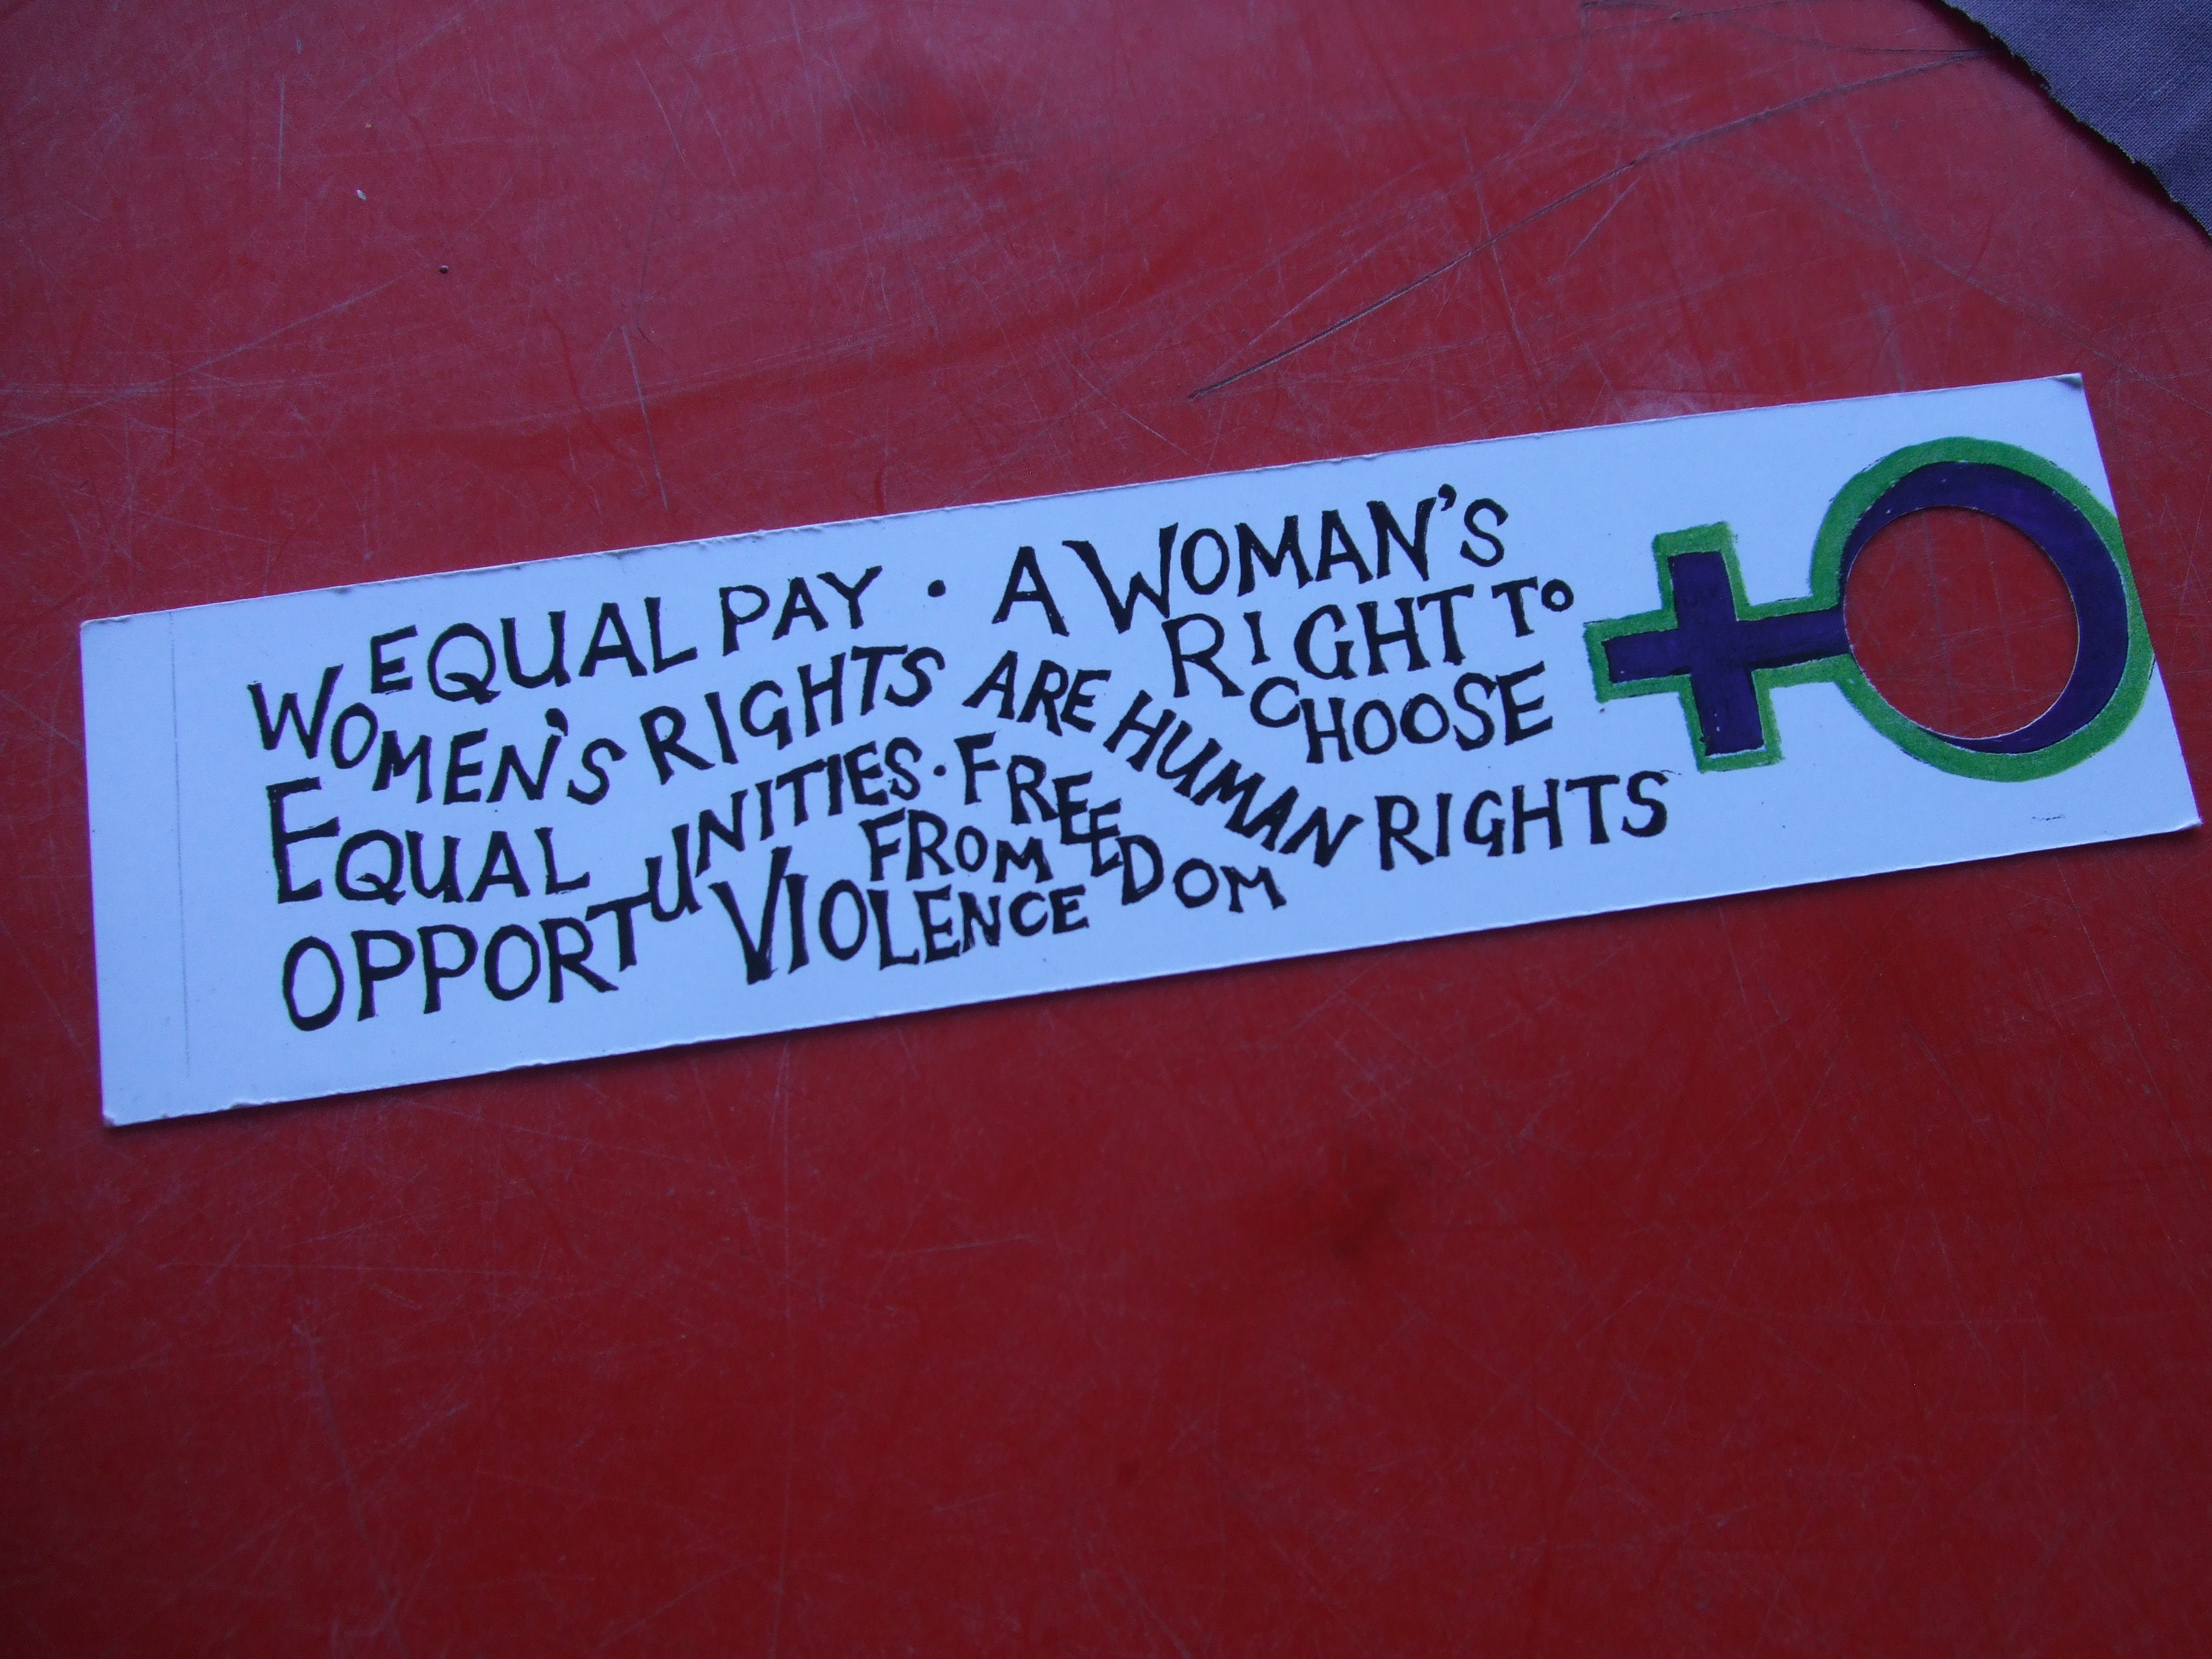 EQUAL PAY · A WOMAN'S
RIGHT TO
CHOOSE
WOMEN'S RIGHTS ARE HUMAN RIGHTS
EQUAL
OPPORTUNITIES · FREEDOM
FROM
VIOLENCE